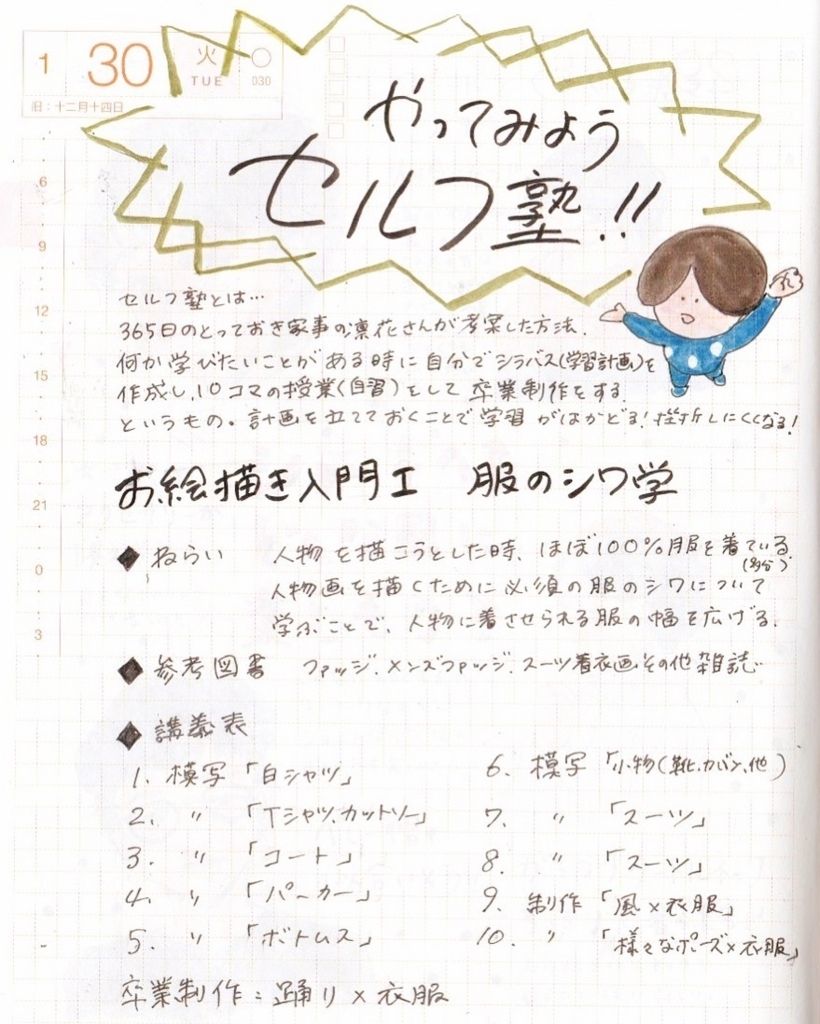 1 30 火 TUE 030
旧:十二月十四日
やってみよう
セルフ塾!!
6
9
12
15
18
21
0
3
セルフ塾とは…
365日のとっておき家事の凛花さんが考案した方法.
何か学びたいことがある時に自分でシラバス(学習計画)を
作成し、10コマの授業(自習)をして卒業制作をする.
というもの。計画を立てておくことで学習がはかどる!挫折しにくくなる!
お絵描き入門I 服のシワ学
◆ ねらい 人物を描こうとした時、ほぼ100%服を着ている.
(多分)
人物画を描くために必須の服のシワについて
学ぶことで、人物に着させられる服の幅を広げる.
◆ 参考図書 ファッジ.メンズファッジ.スーツ着衣画その他雑誌
◆ 講義表
1. 模写「白シャツ」
2. 〃 「Tシャツ.カットソー」
3. 〃 「コート」
4. 〃 「パーカー」
5. 〃 「ボトムス」
6. 模写「小物(靴.カバン.他)
7. 〃 「スーツ」
8. 〃 「スーツ」
9. 制作「風×衣服」
10. 〃 「様々なポーズ×衣服」
卒業制作:踊り×衣服